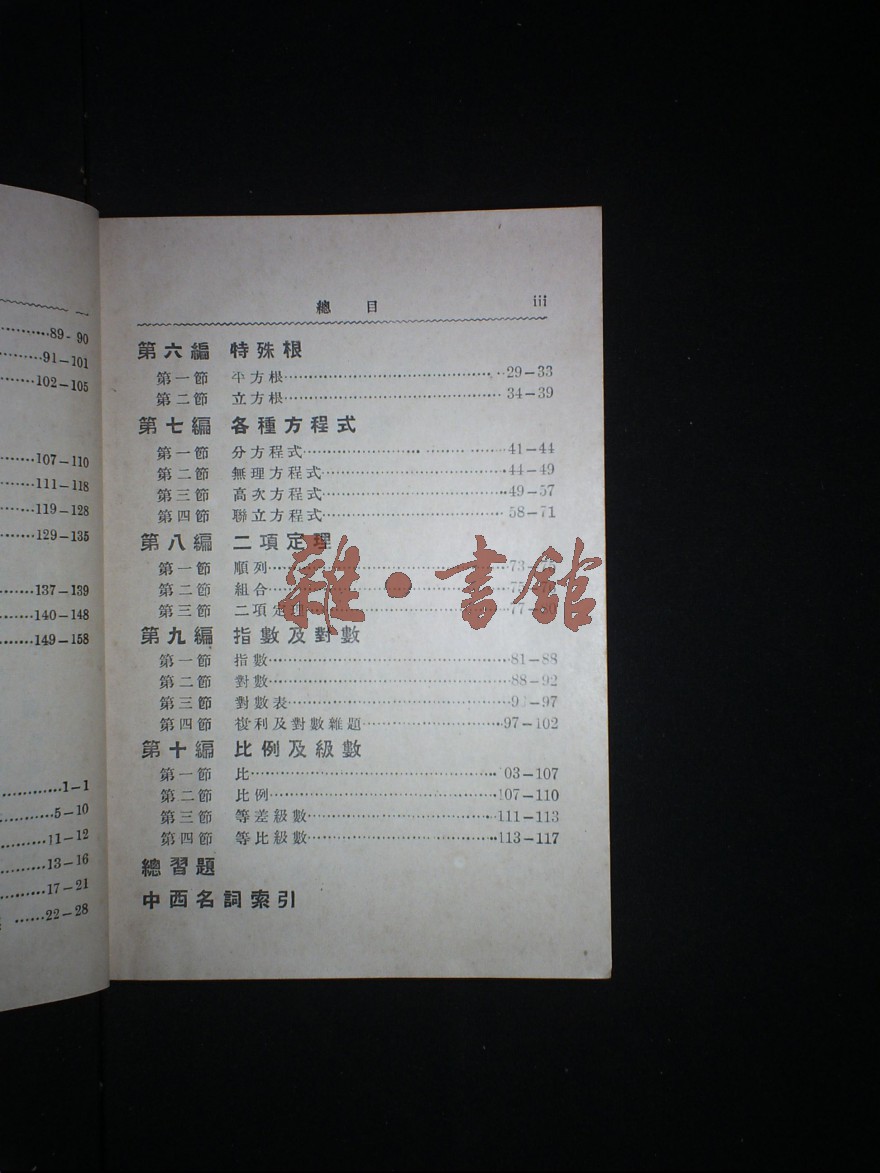 89-90
91-101
102-105
107-110
111-118
119-128
129-135
137-139
140-148
149-158
1-1
5-10
11-12
13-16
17-21
22-28
總目 iii
第六編 特殊根
第一節 平方根 29-33
第二節 立方根 34-39
第七編 各種方程式
第一節 分方程式 41-44
第二節 無理方程式 44-49
第三節 高次方程式 49-57
第四節 聯立方程式 58-71
第八編 二項定理
第一節 順列 73-
第二節 組合
第三節 二項定理 77-80
雜·書館
第九編 指數及對數
第一節 指數 81-88
第二節 對數 88-92
第三節 對數表 9 -97
第四節 複利及對數雜題 97-102
第十編 比例及級數
第一節 比 03-107
第二節 比例 107-110
第三節 等差級數 111-113
第四節 等比級數 113-117
總習題
中西名詞索引